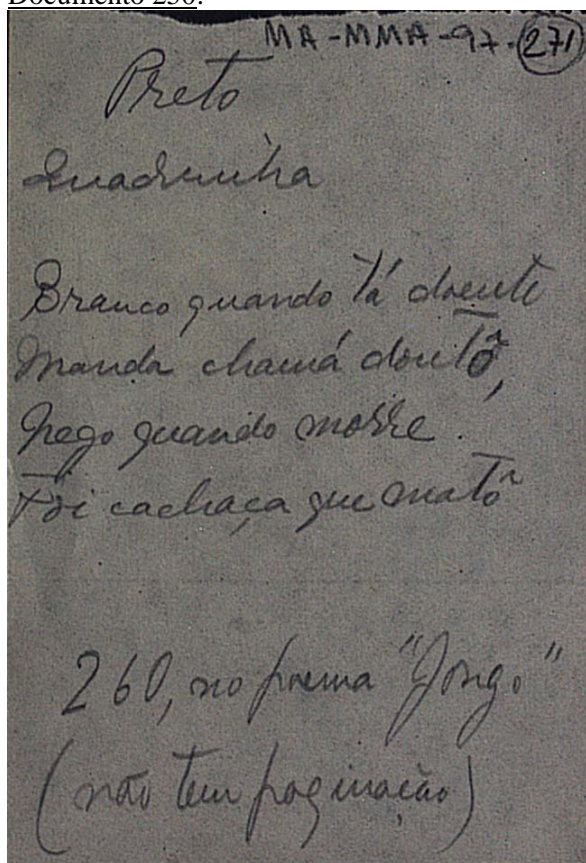 Documento 250:
MA-MMA-97-271
Preto
Quadrinha
Branco quando tá doente
Manda chamá doutô,
Nego quando morre
Foi cachaça que matô
260, no poema "Jongo"
(não tem paginação)